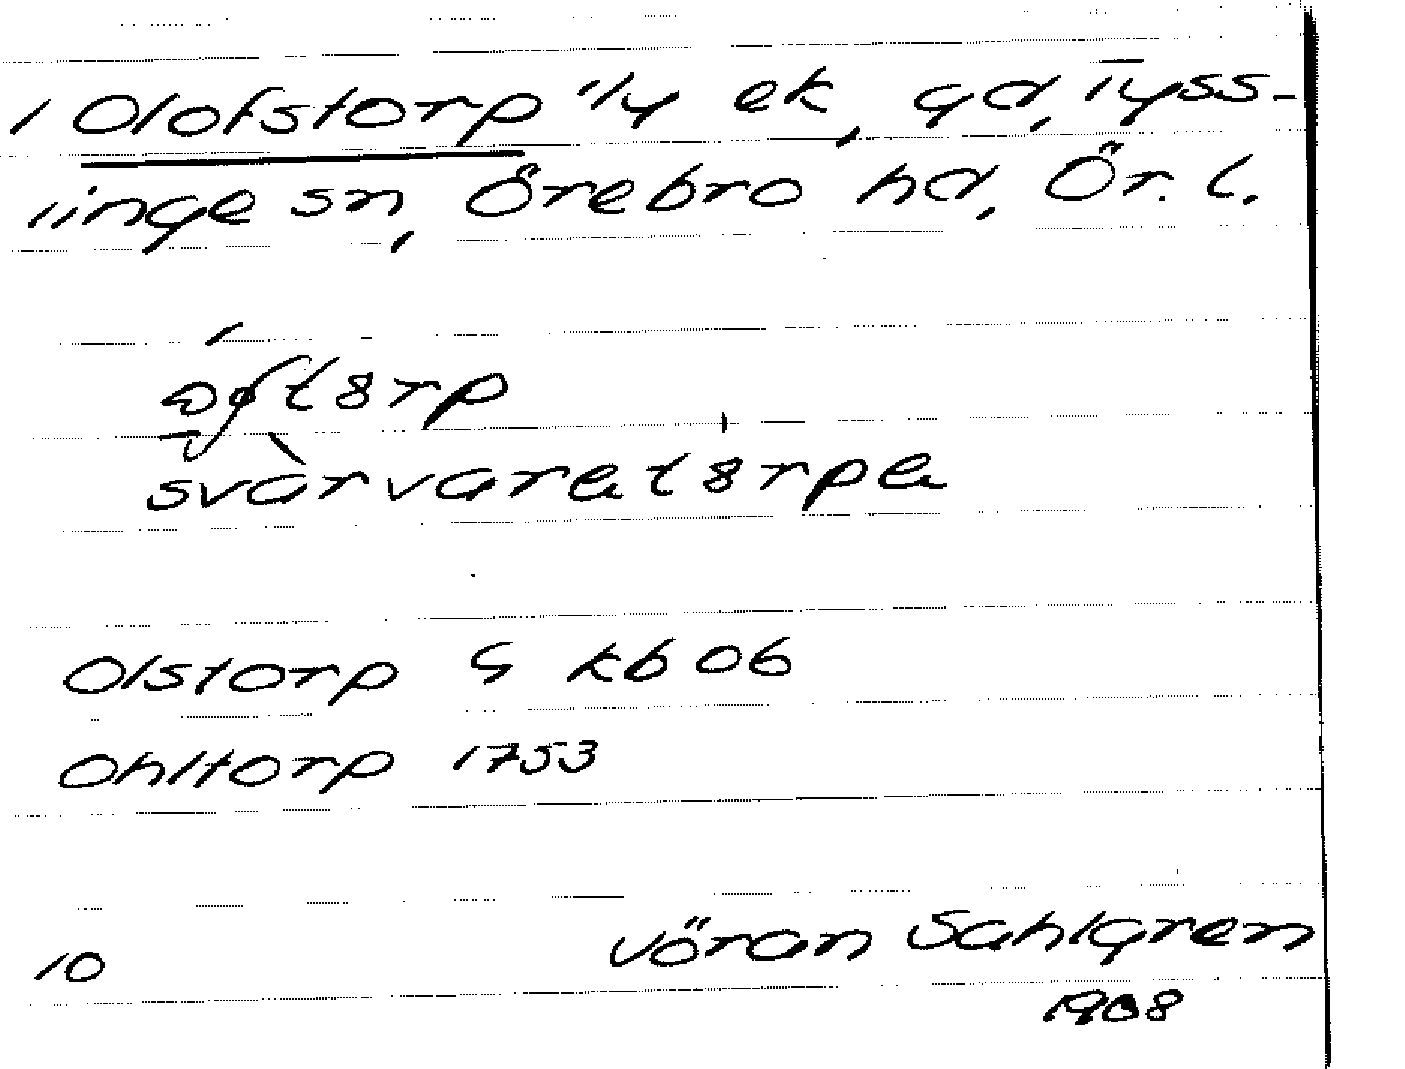 1 Olofstorp 1/4 ek, gd, Tyss-
linge sn, Örebro hd, Ör. l.
svàrvaretørpe
Olstorp G kb 06
Ohltorp 1753
10 Jöran Sahlgren
1908